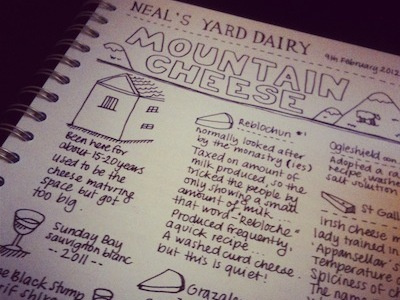 NEAL'S YARD DAIRY
9th February 2012
MOUNTAIN
CHEESE
Been here for
about 15-20 years
used to be the
cheese maturing
space but got
too big.
Sunday Bay
sauvignon blanc
-- 2011 --
Black Stump
Reblochun
normally looked after
by the monastry (ies)
Taxed on amount of
milk produced, so the
tricked the people by
only showing a small
amount of milk....
that word - "Rebloche"
Produced frequently,
a quick recipe.
A washed curd cheese.
but this is quiet!
Ogleshield
Adopted a
recipe, washe
salt solution
St Gall
Irish cheese m
lady trained in
'Appansellar'
Temperature
Spiciness of ch
The name